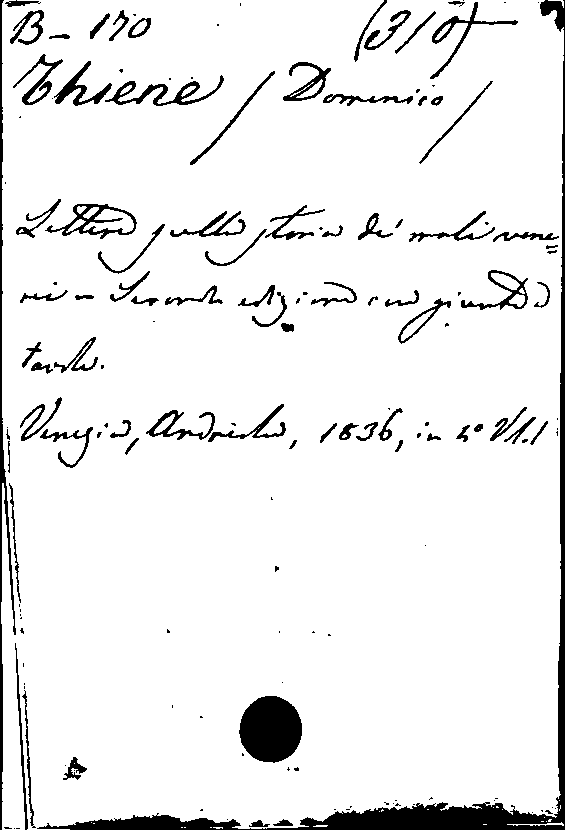 B- 170 (310)
Thiene / Domenico /
Lettere sulla storia de' mali vene=
rei - Seconda edizione con giunte e
tavole.
Venezia, Andreola, 1836, in 4° V1.1